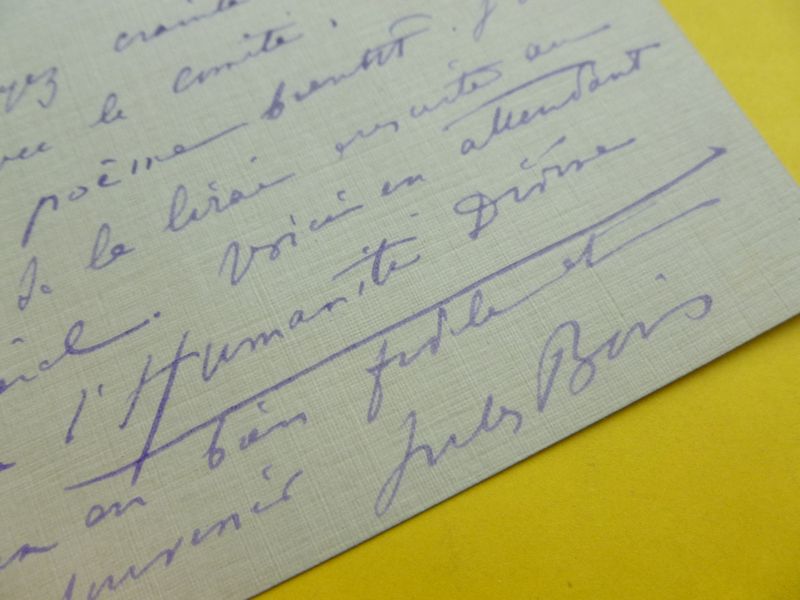 crainte
le comité.
poème bientôt. J
de la lirai ensuite au
Voici en attendant
l'Humanité Divine
un bien fidèle et
souvenir Jules Bois